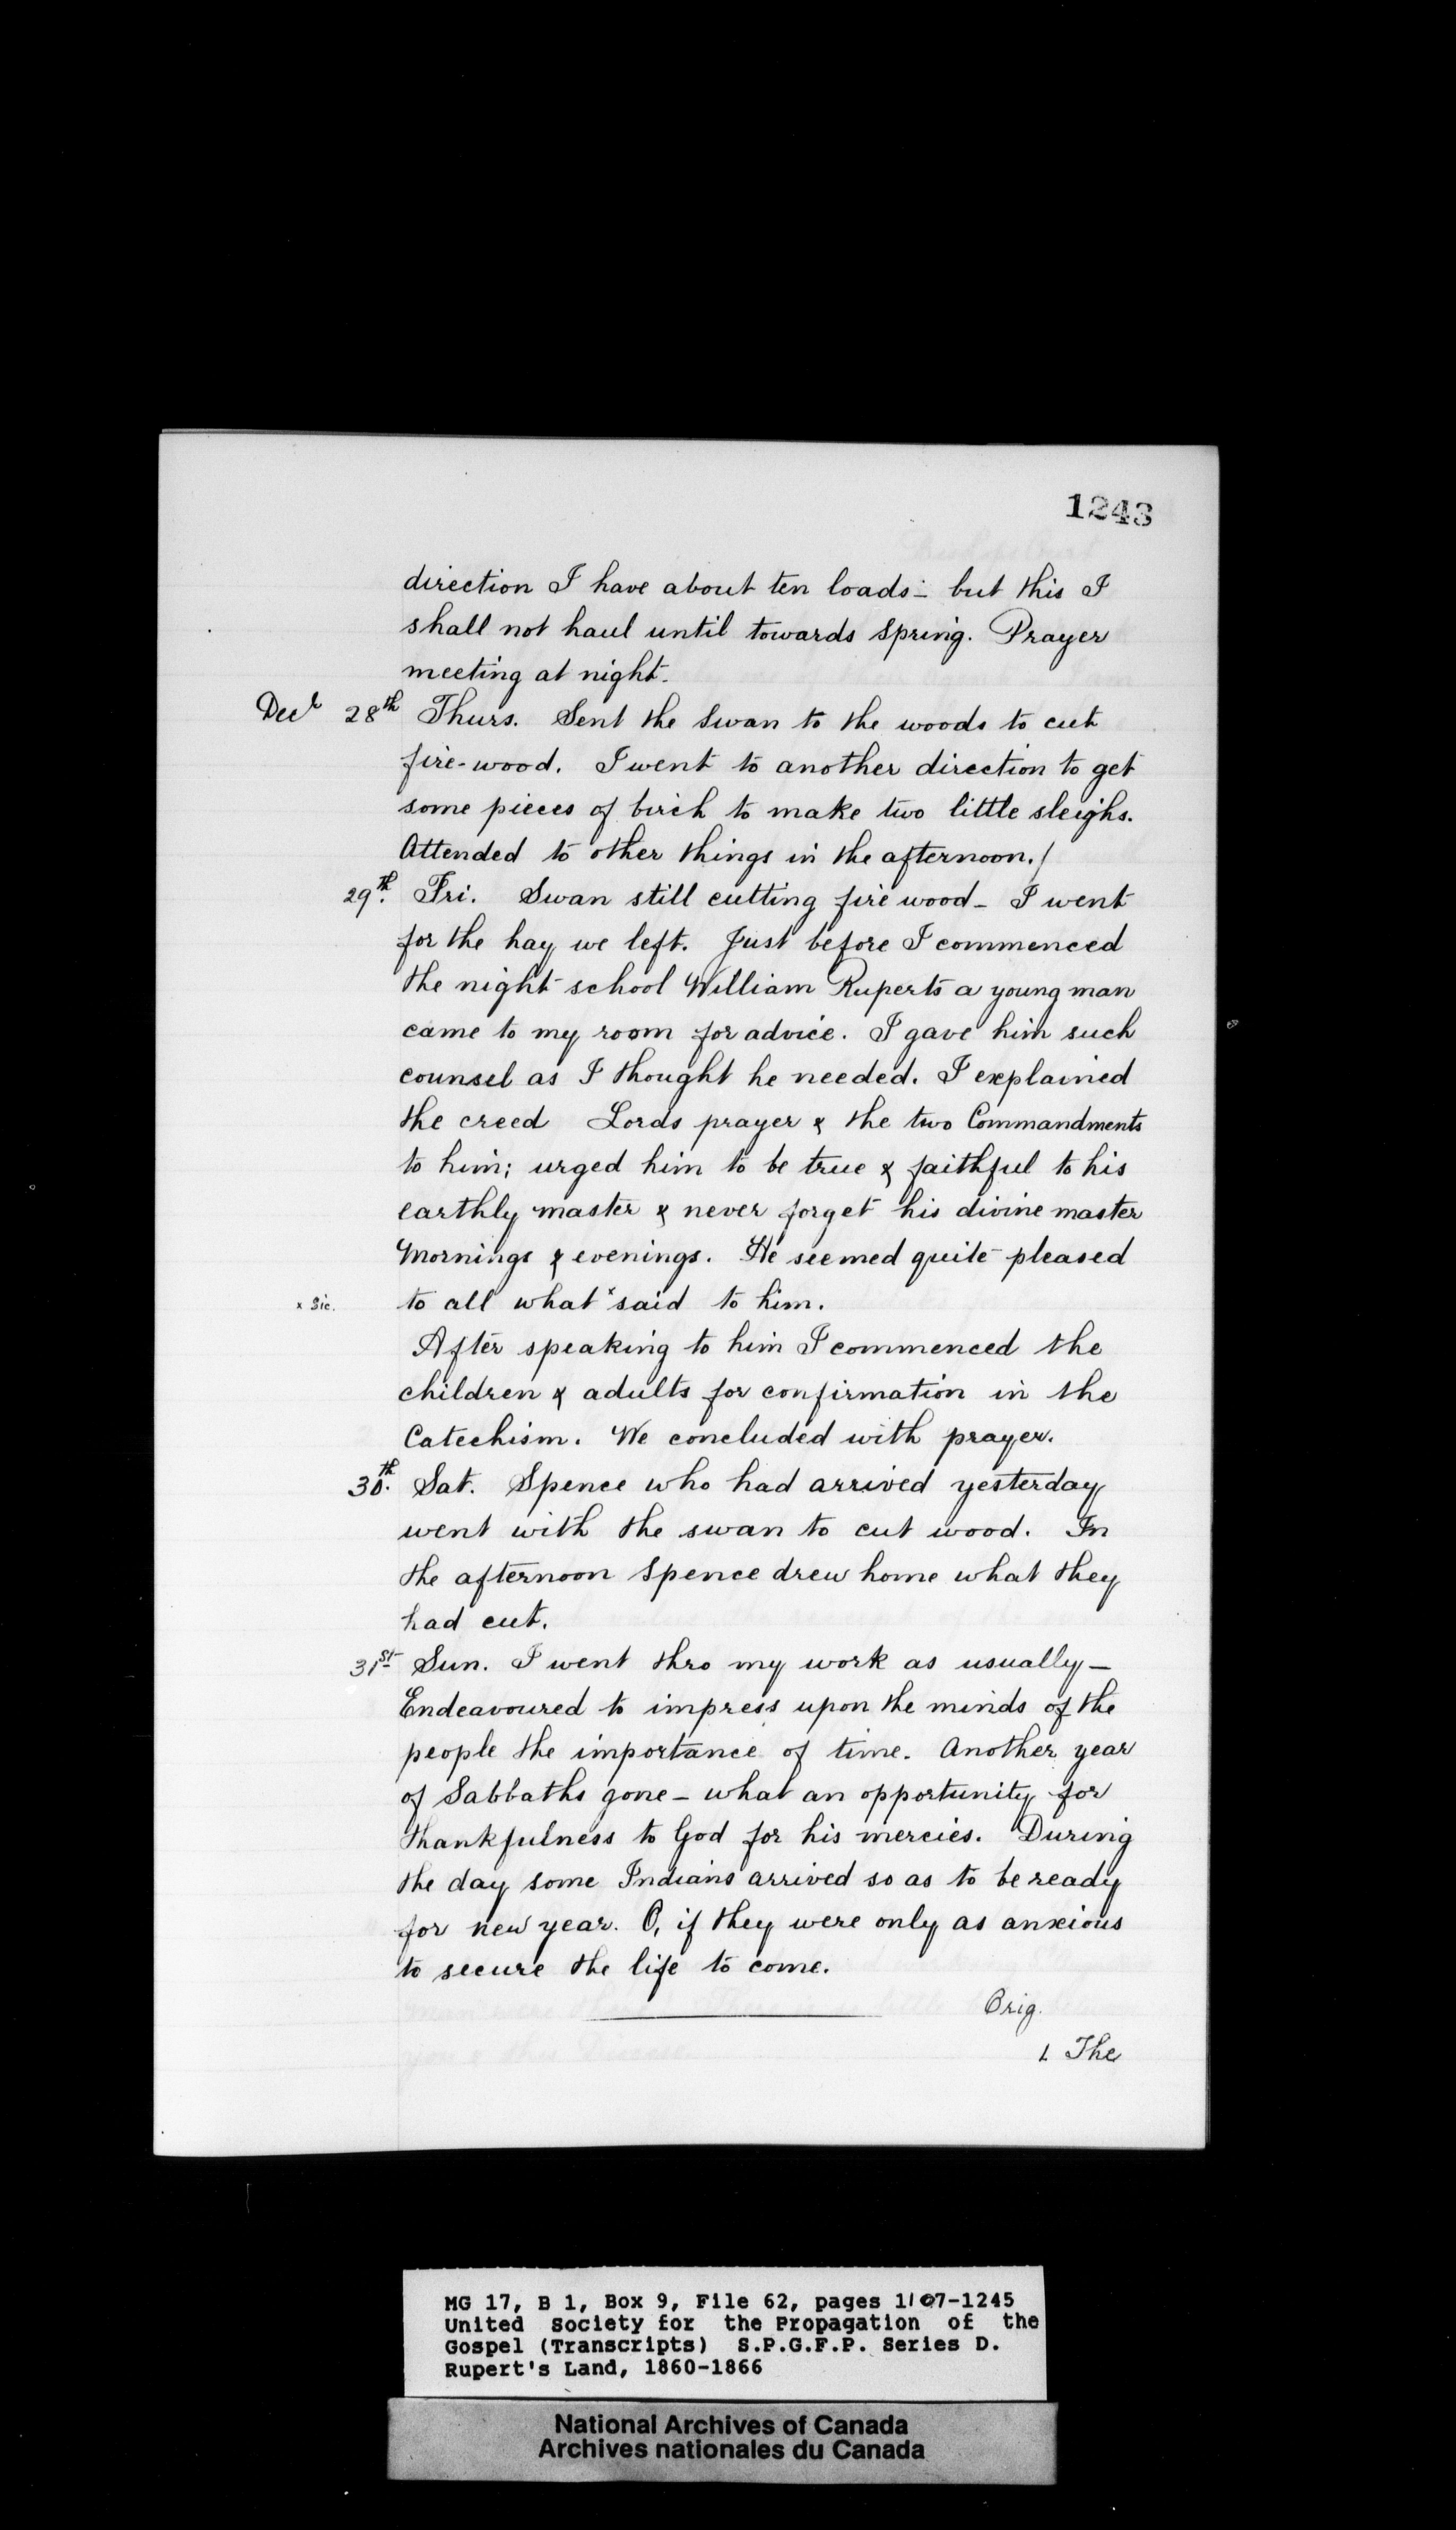 1243
direction I have about ten loads - but this I
shall not haul until towards spring. Prayer
meeting at night.
Decr 28th Thurs. Sent the Swan to the woods to cut
fire-wood. I went to another direction to get
some pieces of birch to make two little sleighs.
Attended to other things in the afternoon./
29th. Fri. Swan still cutting fire wood - I went
for the hay we left. Just before I commenced
the night school William Ruperts a young man
came to my room for advice. I gave him such
counsel as I thought he needed. I explained
the creed Lords prayer & the two Commandments
to him; urged him to be true & faithful to his
earthly master & never forget his divine master
Mornings & evenings. He seemed quite pleased
x Sic. to all what x said to him.
After speaking to him I commenced the
children & adults for confirmation in the
Catechism. We concluded with prayer.
30th. Sat. Spence who had arrived yesterday
went with the swan to cut wood. In
the afternoon Spence drew home what they
had cut.
31st Sun. I went thro my work as usually -
Endeavoured to impress upon the minds of the
people the importance of time. Another year
of Sabbaths gone - what an opportunity for
thankfulness to God for his mercies. During
the day some Indians arrived so as to be ready
for new year. O, if they were only as anxious
to secure the life to come.
Orig.
L The
MG 17, B 1, Box 9, File 62, pages 1107-1245
United Society for the Propagation of the
Gospel (Transcripts) S.P.G.F.P. Series D.
Rupert's Land, 1860-1866
National Archives of Canada
Archives nationales du Canada